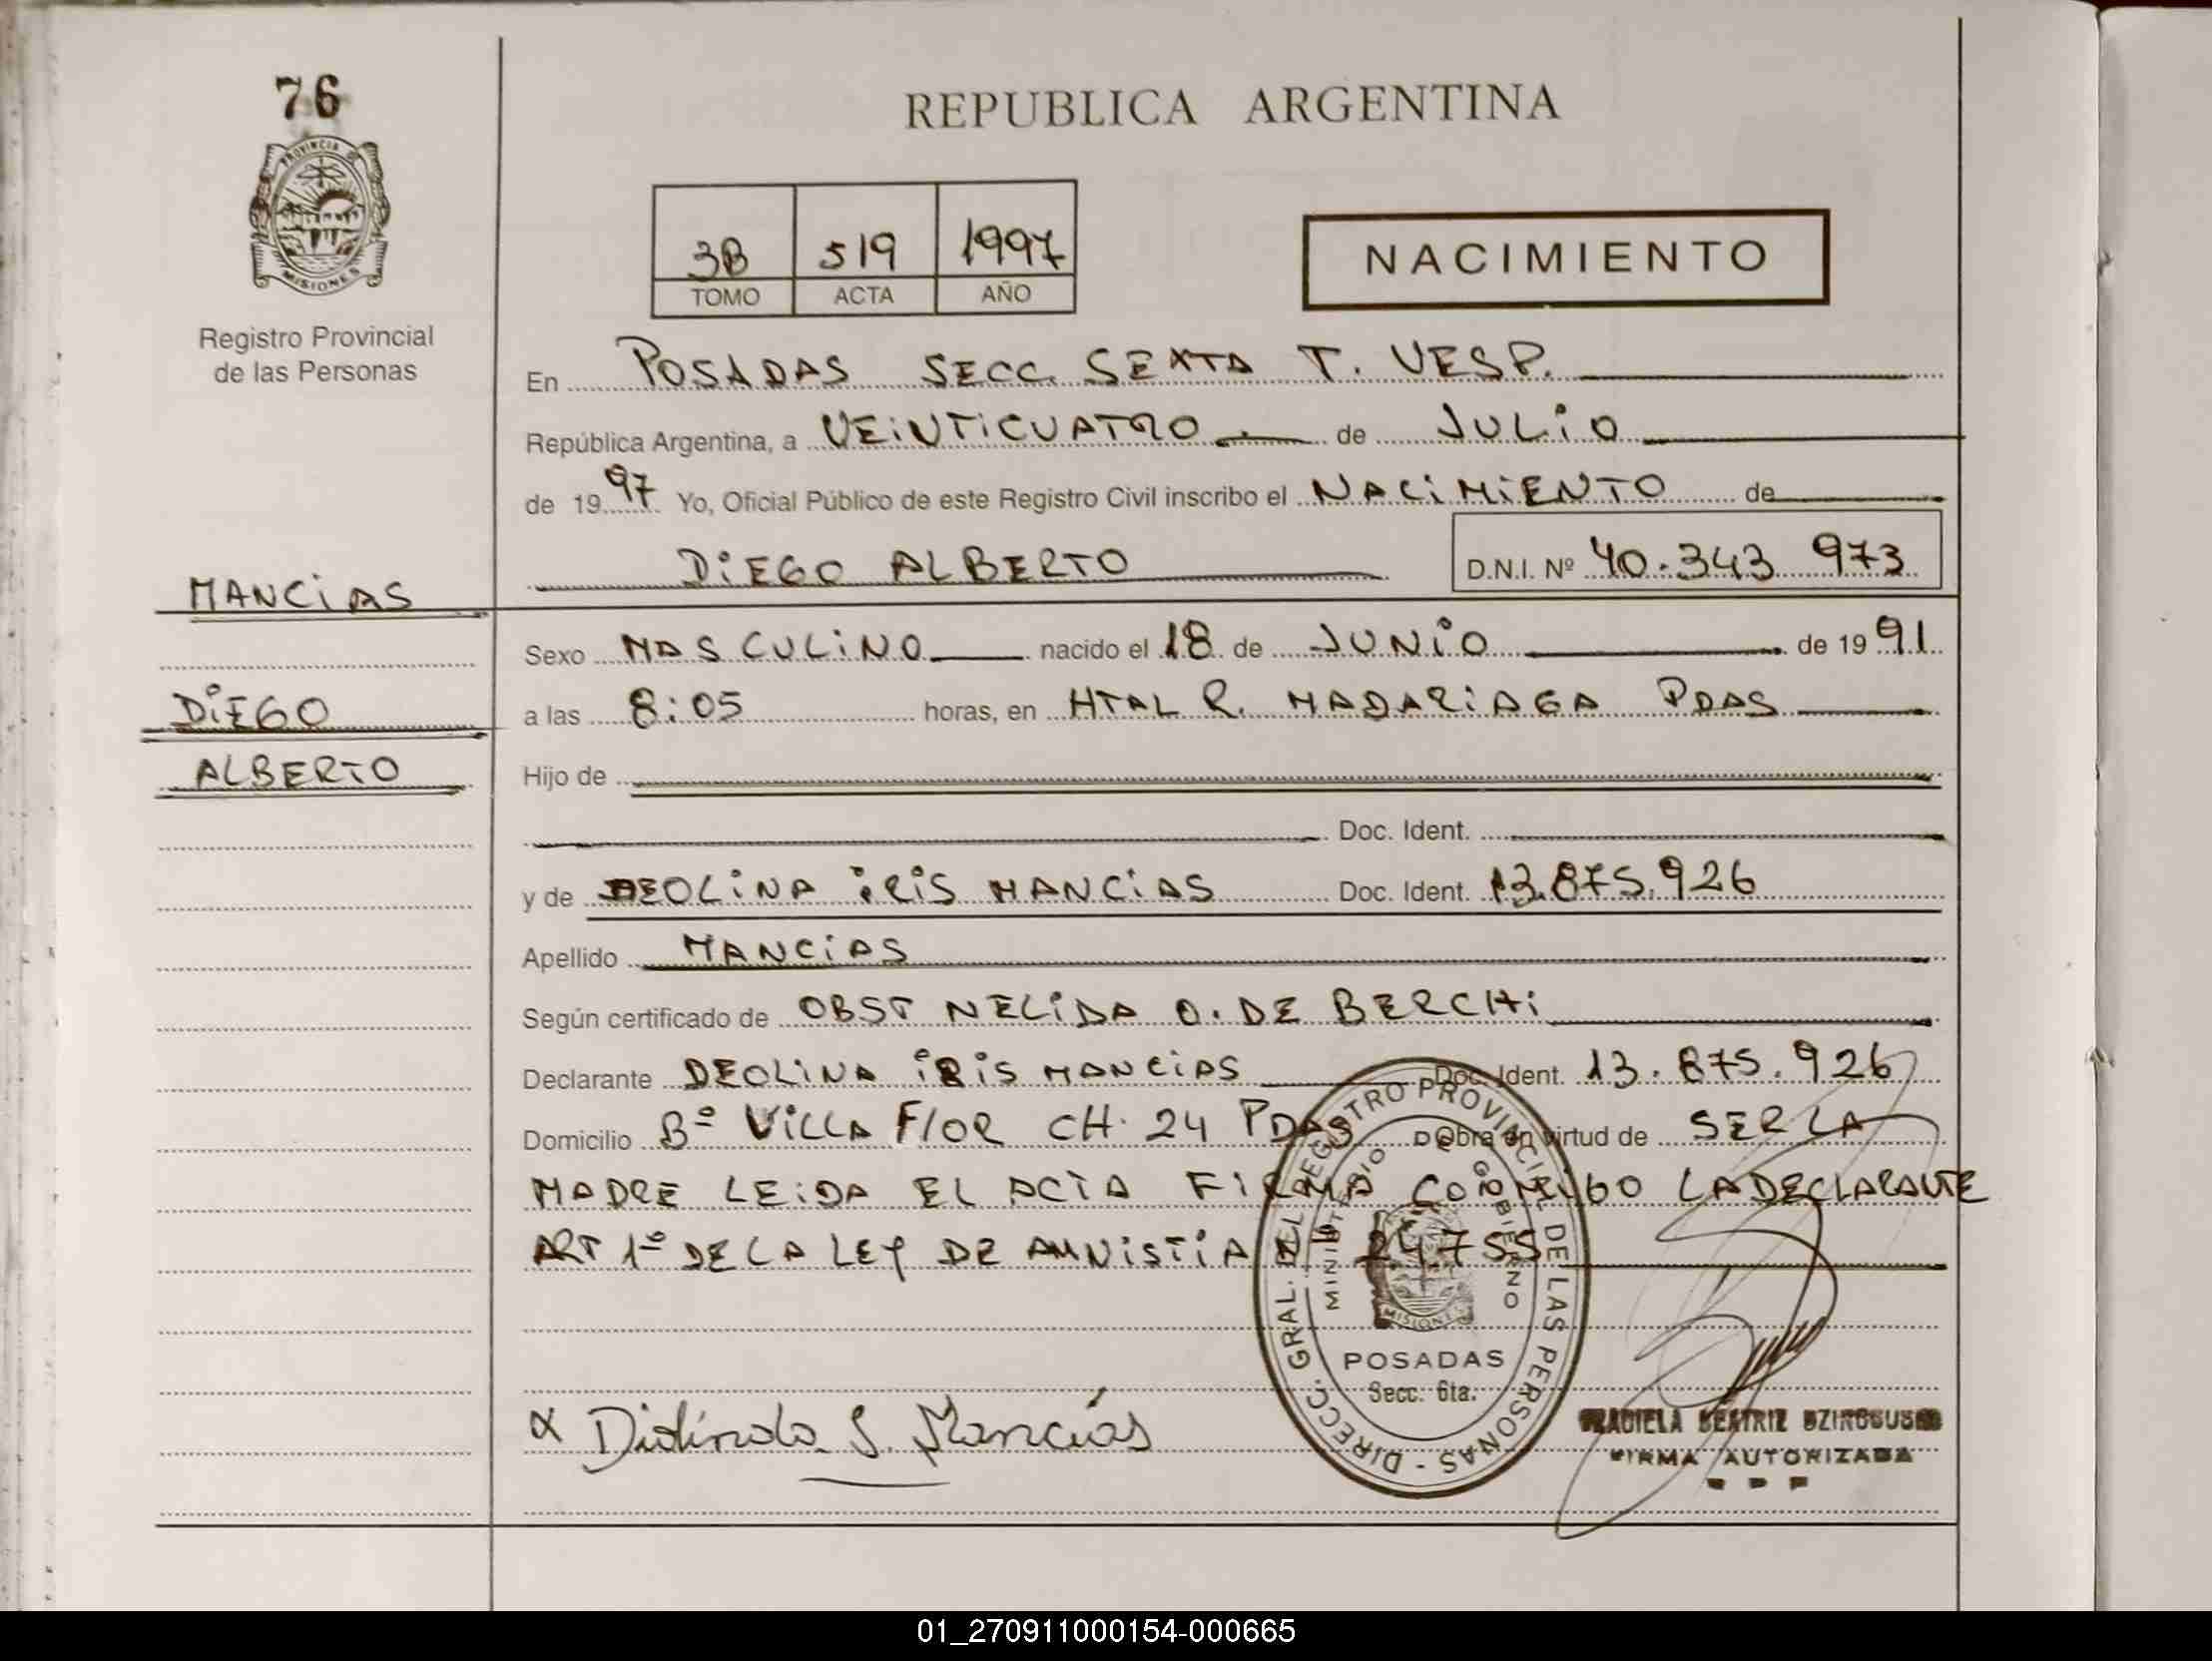 76
PROVINCIA DE
MISIONES
Registro Provincial
de las Personas
REPUBLICA ARGENTINA
3B 519 1997
TOMO ACTA AÑO
NACIMIENTO
En POSADAS SECC. SEXTA T. VESP.
República Argentina, a VEiNTiCUATRO de JULiO
de 1997 Yo, Oficial Público de este Registro Civil inscribo el NACiMiENTO de
DiEGO ALBERTO D.N.I. Nº 40.343 973
MANCiAS
DiEGO
ALBERTO
Sexo MASCULiNO nacido el 18 de JUNiO de 1991
a las 8:05 horas, en HTAL R. MADARiAGA PDAS
Hijo de
Doc. Ident.
y de DEOLiNA iRiS MANCiAS Doc. Ident. 13.875.926
Apellido MANCiAS
Según certificado de OBST NELiDA O. DE BERCHi
Declarante DEOLiNA iRiS MANCiAS Doc. Ident. 13.875.926
Domicilio Bº ViLLA FlOR CH. 24 PDAS Obra en virtud de SER LA
MADRE LEiDA EL ACTA FiRMA CONMiGO LA DECLARANTE
ART 1º DE LA LEY DE AMNiSTiA 24755
DIRECC. GRAL. DEL REGISTRO PROVINCIAL DE LAS PERSONAS
MINISTERIO GOBIERNO
MISIONES
POSADAS
Secc. 6ta.
Mancías
GRACIELA BEATRIZ
FIRMA AUTORIZADA
01_270911000154-000665